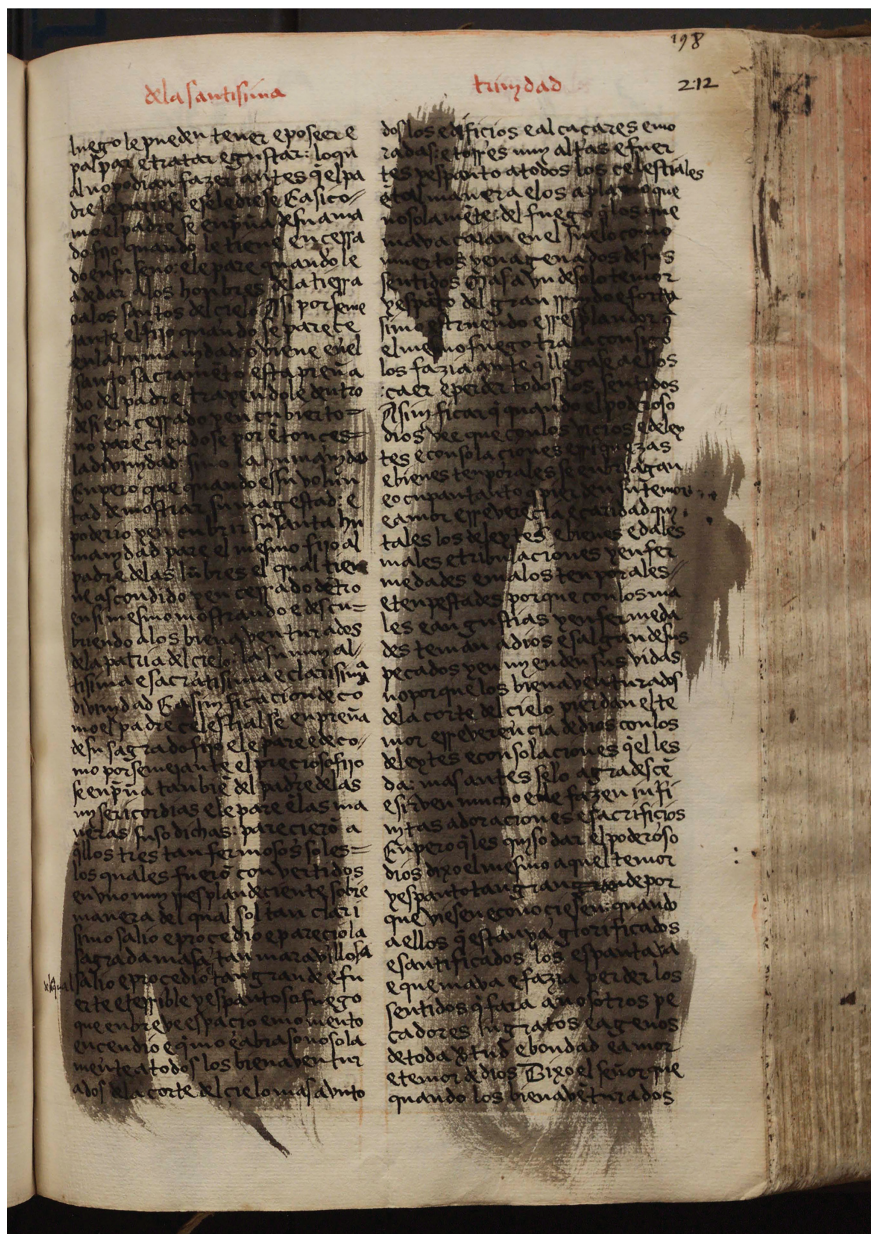 198
212
de la santisima trinydad
luego le pueden tener e poseer e
palpar e tratar e gustar: lo qu
al no podian fazer antes q̃l pa
dre le pariese e se le diese E asi co
mo el padre se enpr̃ña de su ama
do fijo quando le tiene encerra
do en su seno: e le pare quando le
a de dar a los honbres de la tierra
o a los santos del cielo Asi por seme
jante el fijo quando se parece
en la humanydad o viene en el
santo sacramẽto esta preña
do del padre trayendole dentro
de si encerrado y encubierto
no pareciendose por ẽtonces
la divinydad sino la humanydad
Enpero que quando es su volun
tad demostrar su magestad: e
poderio y encubrir su santa hu
manydad pare el mesmo fijo al
padre de las lũbres el qual tiene
ne ascondido y encerrado dẽtro
en si mesmo mostrando e descu
briendo a los bienaventurados
de la patria del cielo: la su muy al
tisima e sacratisima e clarisima
divinydad E a sinificacion de co
mo el padre celestial se enpreña
de su sagrado fijo e le pare e de co
mo por semejante el precioso fijo
se enpr̃ña tanbiẽ del padre de las
mysericordias e le pare ẽ las ma
neras suso dichas: parecierõ a
q̃llos tres tan fermosos soles
los quales fuerõ convertidos
en vno muy resplandeciente sobre
manera del qual sol tan clari
simo salio e procedio e parecio la
sagrada masa tan maravillosa
salio e procedio tan grande e fu
erte e terrible y espantoso fuego
que en breve espacio e momento
encendio e q̃mo e abraso no sola
mẽte a todos los bienaventur
ados de la corte del cielo mas avnto
dos los edificios e alcaçares e mo
radas: e torres muy altas e fuer
tes y espanto a todos los celestiales
ẽ tal manera e los aplano que
no solamẽte: del fuego q̃ los que
mava caian en el suelo como
muertos y enagenados de sus
sentidos mas avn de solo temor
y espãto del gran rruydo e forty
simo estruendo e rresplandor q̃
el mesmo fuego traia consigo
los fazia ante q̃ llegase a ellos
caer e perder todos los sentidos
A sinificar q̃ quando el poderoso
dios vee que con los vicios e deley
tes e consolaciones e rriquezas
e bienes tenporales se enbriagan
e ocupan tanto q̃ pierden su temor
e amor e rreverẽcia e caridad qui
tales los deleytes e bienes e dales
males e tribulaciones y enfer
medades e malos tenporales
e tenpestades porque con los ma
les e angustias y enfermeda
des teman a dios e salgan de sus
pecados y enmyenden sus vidas
no porque los bienaventurados
de la corte del cielo pierdan el te
mor e rreverencia de dios con los
deleytes e consolaciones q̃ el les
da: mas antes se lo agradescẽ
e sirven mucho e le fazen infi
nytas adoraciones e sacrificios
Enpero q̃ les quiso dar el poderoso
dios dixo el mesmo aquel temor
y espanto tan grande por
que viesen e conociesen: quando
a ellos q̃ estan ya glorificados
e santificados los espantava
e quemava e fazia perder los
sentidos q̃ fara a nosotros pe
cadores ingratos e agenos
de toda virtud e bondad e amor
e temor de dios Dixo el señor que
quando los bienavẽturados